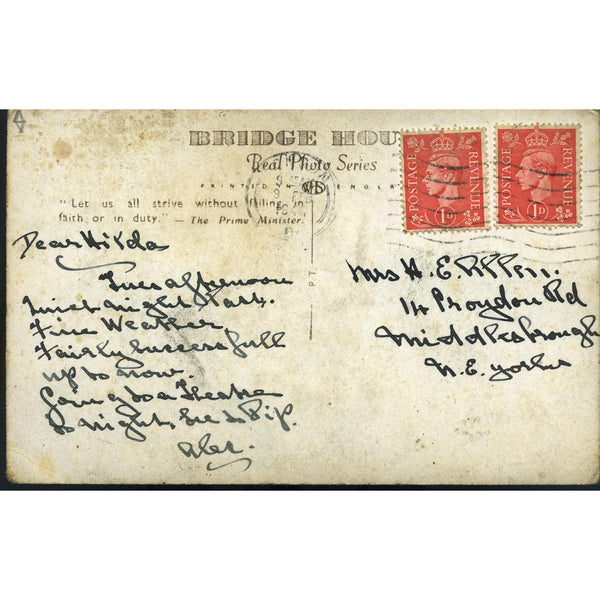 BRIDGE HOU
Real Photo Series
PRINTED IN ENGL
"Let us all strive without failing in
faith or in duty." — The Prime Minister.
POSTAGE REVENUE
1D
POSTAGE REVENUE
1D
Dear Hilda
afternoon
Fine Weather
Fairly Successfull
up to now.
Going to a Theatre
to night,
Mrs H. E.
14 Rd
Middlesbrough
N.E. Yorks